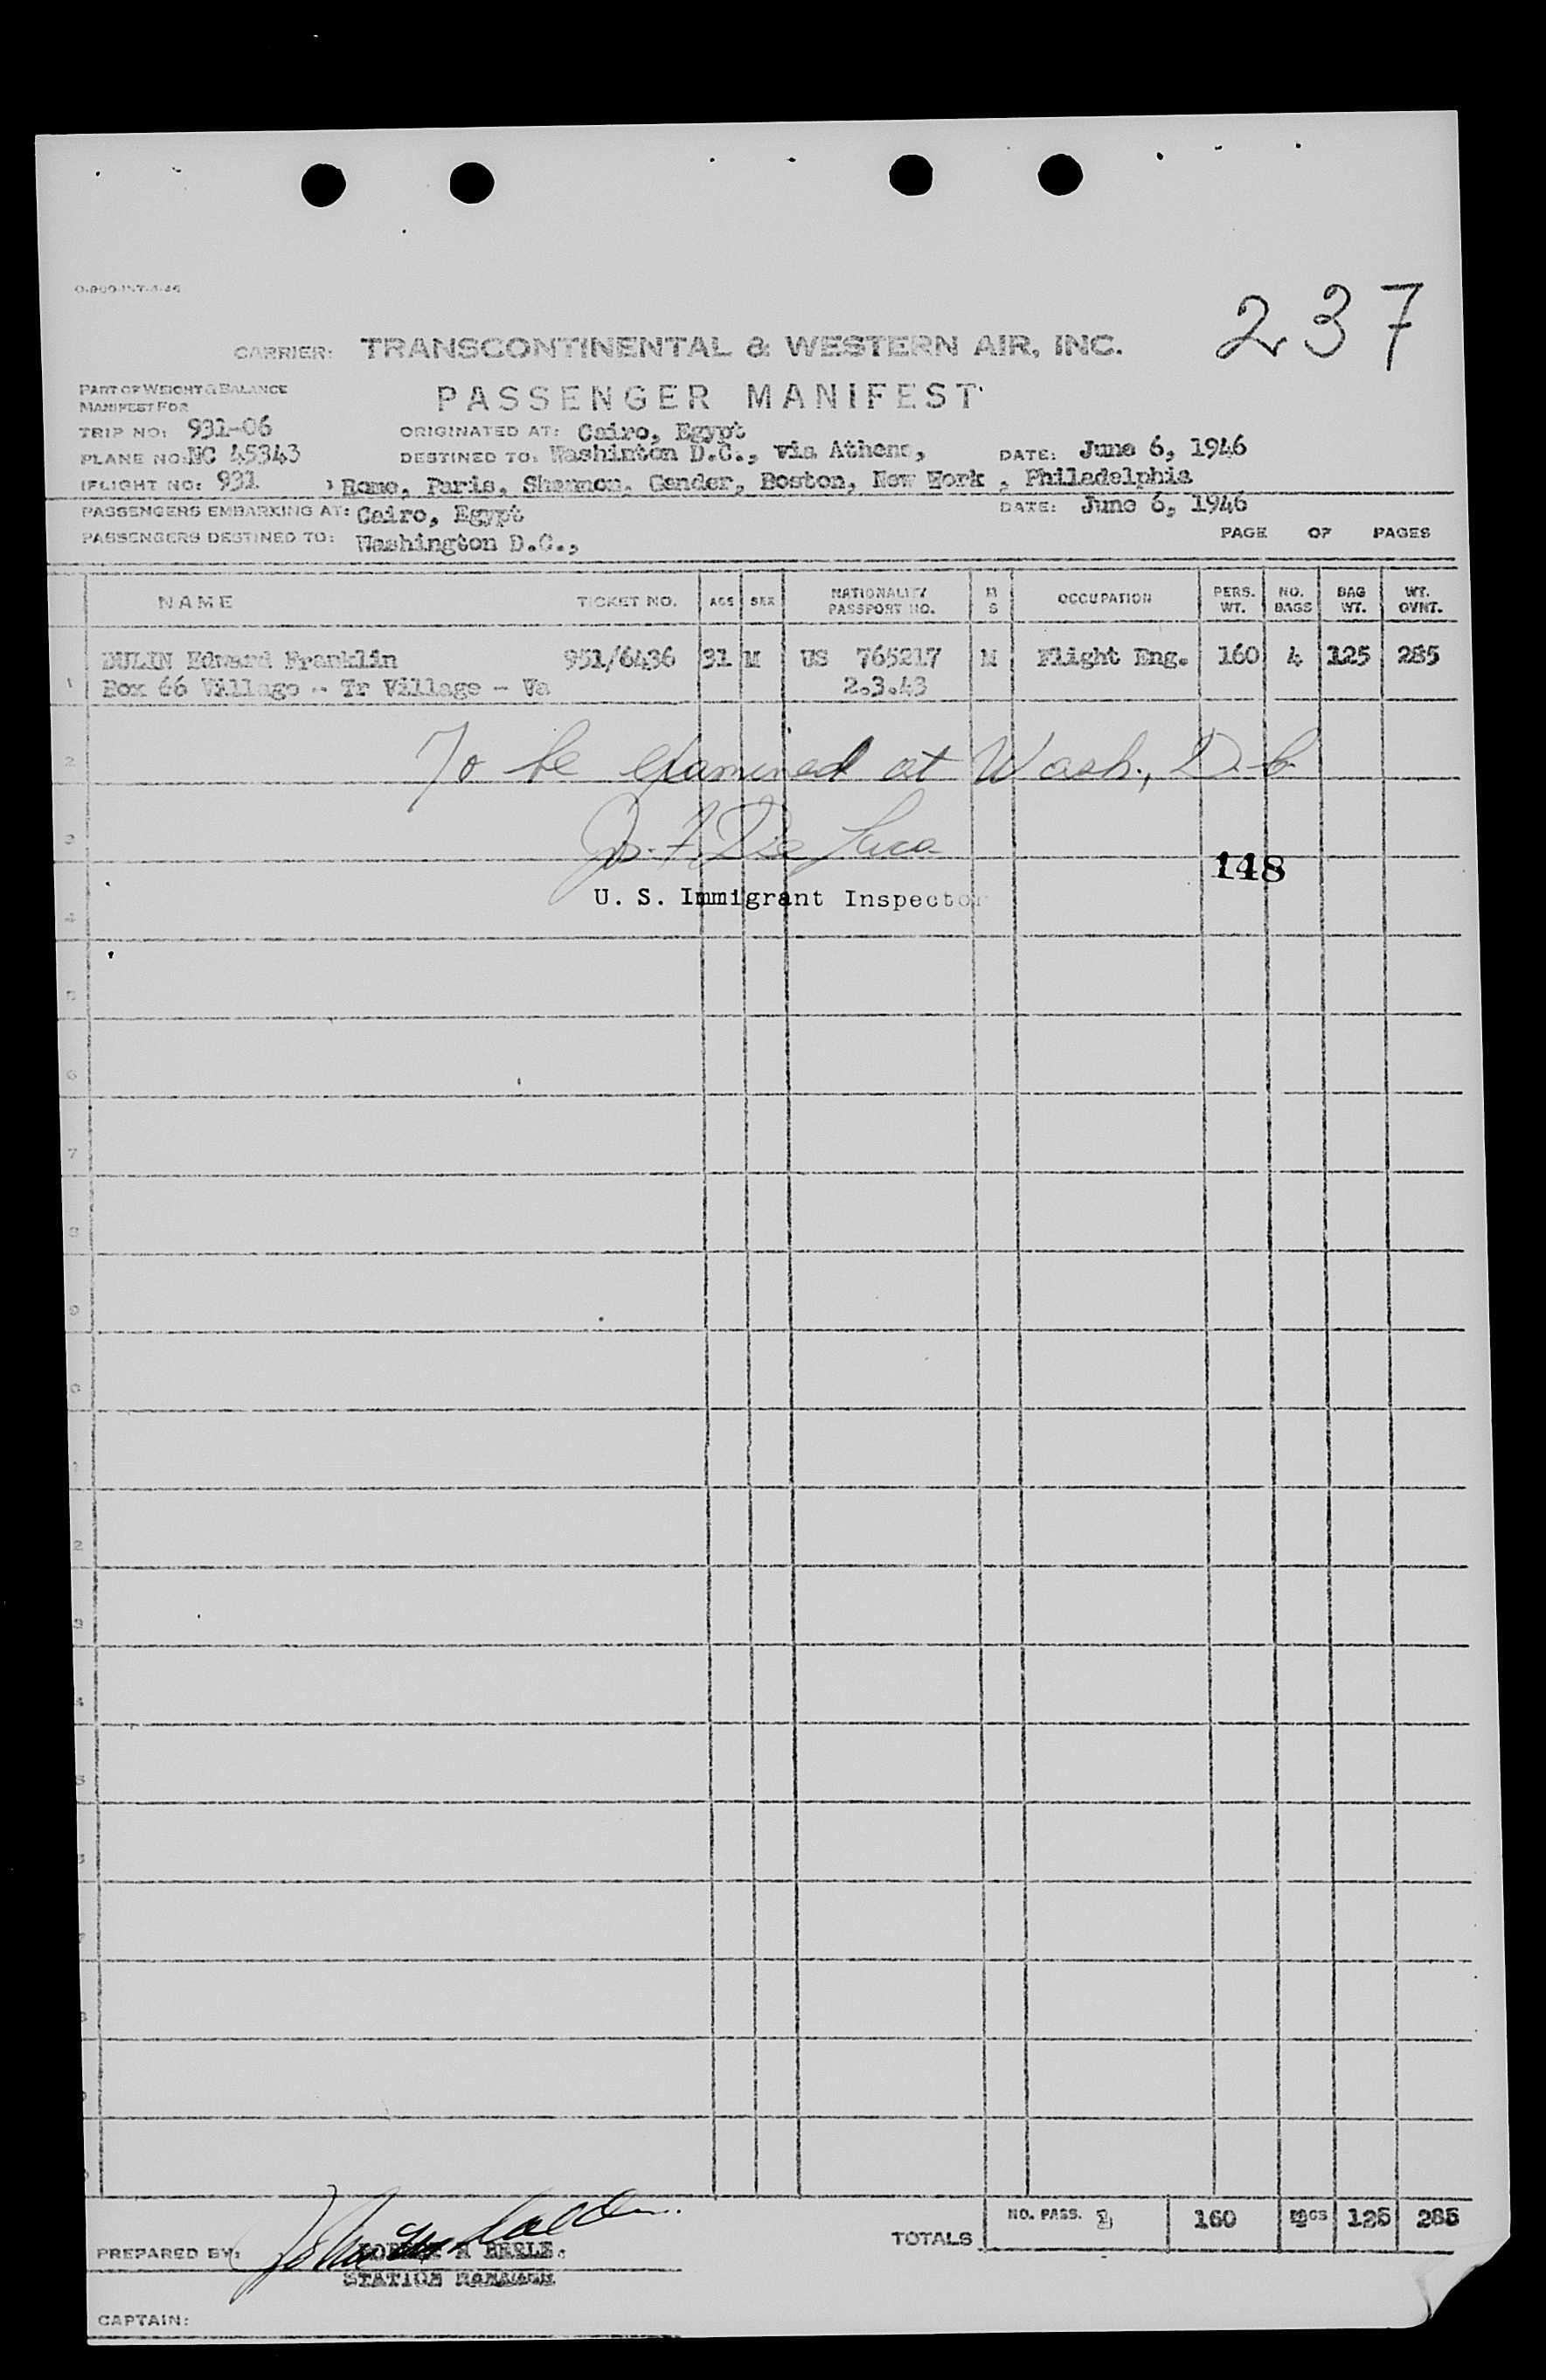 237
CARRIER: TRANSCONTINENTAL & WESTERN AIR, INC.
PART OF WEIGHT & BALANCE
MANIFEST FOR
PASSENGER MANIFEST
TRIP NO: 931-06
ORIGINATED AT: Cairo, Egypt
PLANE NO: NC 45343
DESTINED TO: Washinton D.C., via Athens,
DATE: June 6, 1946
FLIGHT NO: 931
Rome, Paris, Shannon, Gander, Boston, New York , Philadelphia
PASSENGERS EMBARKING AT: Cairo, Egypt
DATE: June 6, 1946
PASSENGERS DESTINED TO: Washington D.C.,
PAGE OF PAGES
NAME TICKET NO. AGE SEX NATIONALITY PASSPORT NO. M S OCCUPATION PERS. WT. NO. BAGS BAG WT. WT. GVNT.
DULIN Edward Franklin 951/6436 31 M US 765217 M Flight Eng. 160 4 125 285
1 Box 66 Village -- Tr Village - Va 2.3.43
2 To be examined at Wash., D.C.
3 Jos. F. De Luca
148
U. S. Immigrant Inspector
4
5
6
7
8
9
0
1
2
3
4
5
TOTALS NO. PASS. 1 160 BAGS 125 285
PREPARED BY:
STATION MANAGER
CAPTAIN: